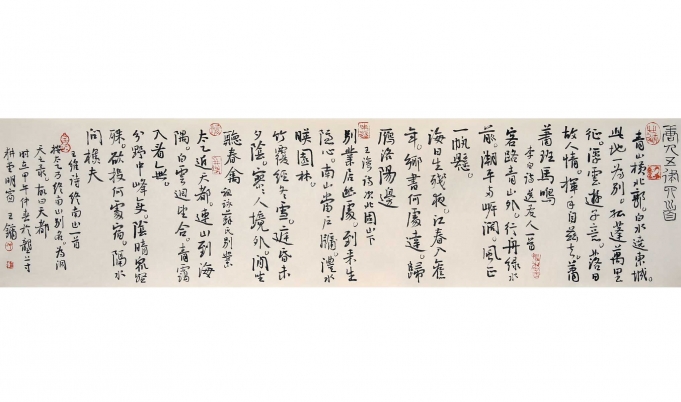 唐人五律
青山橫北郭。白水遶東城。
此地一為別。孤蓬萬里
征。浮雲遊子意。落日
故人情。揮手自茲去。蕭
蕭班馬鳴
李白詩送友人一首
客路青山外。行舟綠水
前。潮平兩岸闊。風正
一帆懸。
海日生殘夜。江春入舊
年。鄉書何處達。歸
雁洛陽邊
王灣詩次北固山下
別業居幽處。到來生
隱心。南山當戶牖。灃水
映園林。
竹覆經冬雪。庭昏未
夕陰。寥寥人境外。閒坐
聽春禽 祖詠蘇氏別業
太乙近天都。連山到海
隅。白雲迴望合。青靄
入看無。
分野中峰變。陰晴眾壑
殊。欲投何處宿。隔水
問樵夫
王維詩終南山一首
太乙乃終南山別名。為洞
天之最。故曰天都
時在甲午仲春於龍
明窗 王鏞